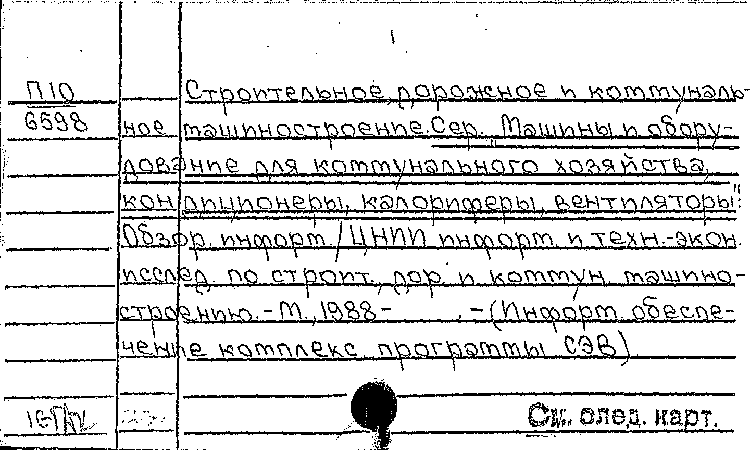 П10
6598
Строительное, дорожное и коммуналь-
ное машиностроение. Сер. "Машины и обору-
дование для коммунального хозяйства,
кондиционеры, калориферы, вентиляторы":
Обзор. информ. / ЦНИИ информ. и техн.-экон.
исслед. по строит., дор. и коммун. машино-
строению. - М., 1988 - . - (Информ. обеспе-
чение комплекс. программы СЭВ)
См. след. карт.